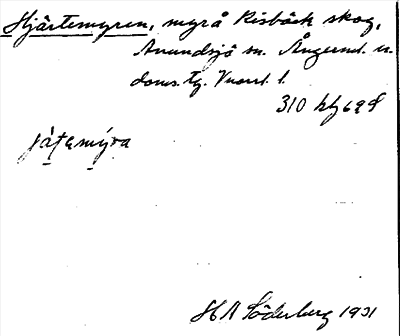 Hjärtemyren, myrå Risbäck skog,
Anundsjö sn. Ångerml. n.
doms. tg. Vnorrl. l.
310
jätemýra
H A Söderberg 1931